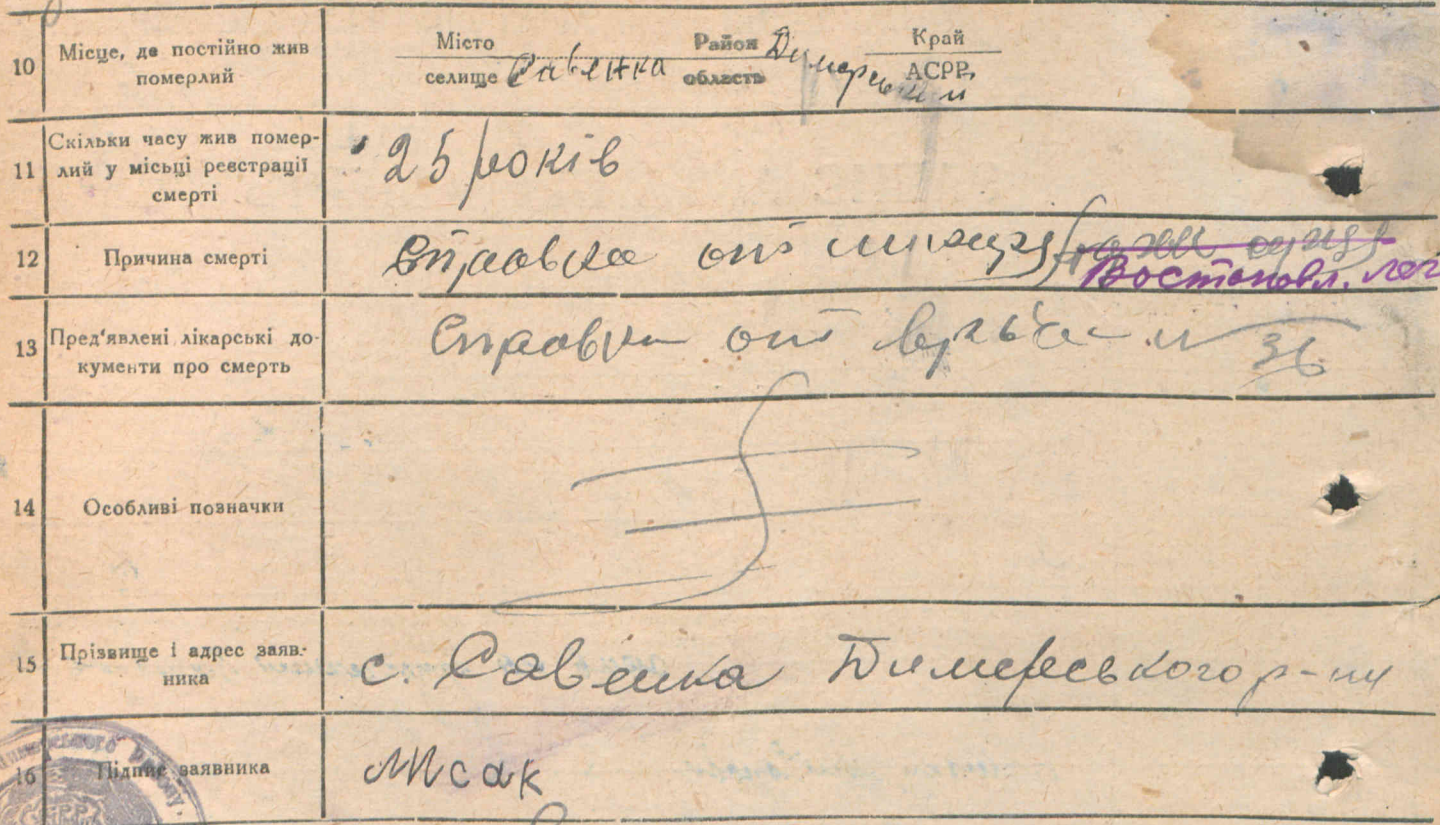 10 Місце, де постійно жив
померлий
Місто Район Край
селище Савенка область Димерський АСРР
11 Скільки часу жив помер-
лий у місьці реєстрації
смерті
25 років
12 Причина смерті
Справка от
Востановл.
13 Пред'явлені лікарські до-
кументи про смерть
Справка от врача 36
14 Особливі позначки
15 Прізвище і адрес заяв-
ника
с. Савенка Димерського р-ну
16 Підпис заявника
Мисак